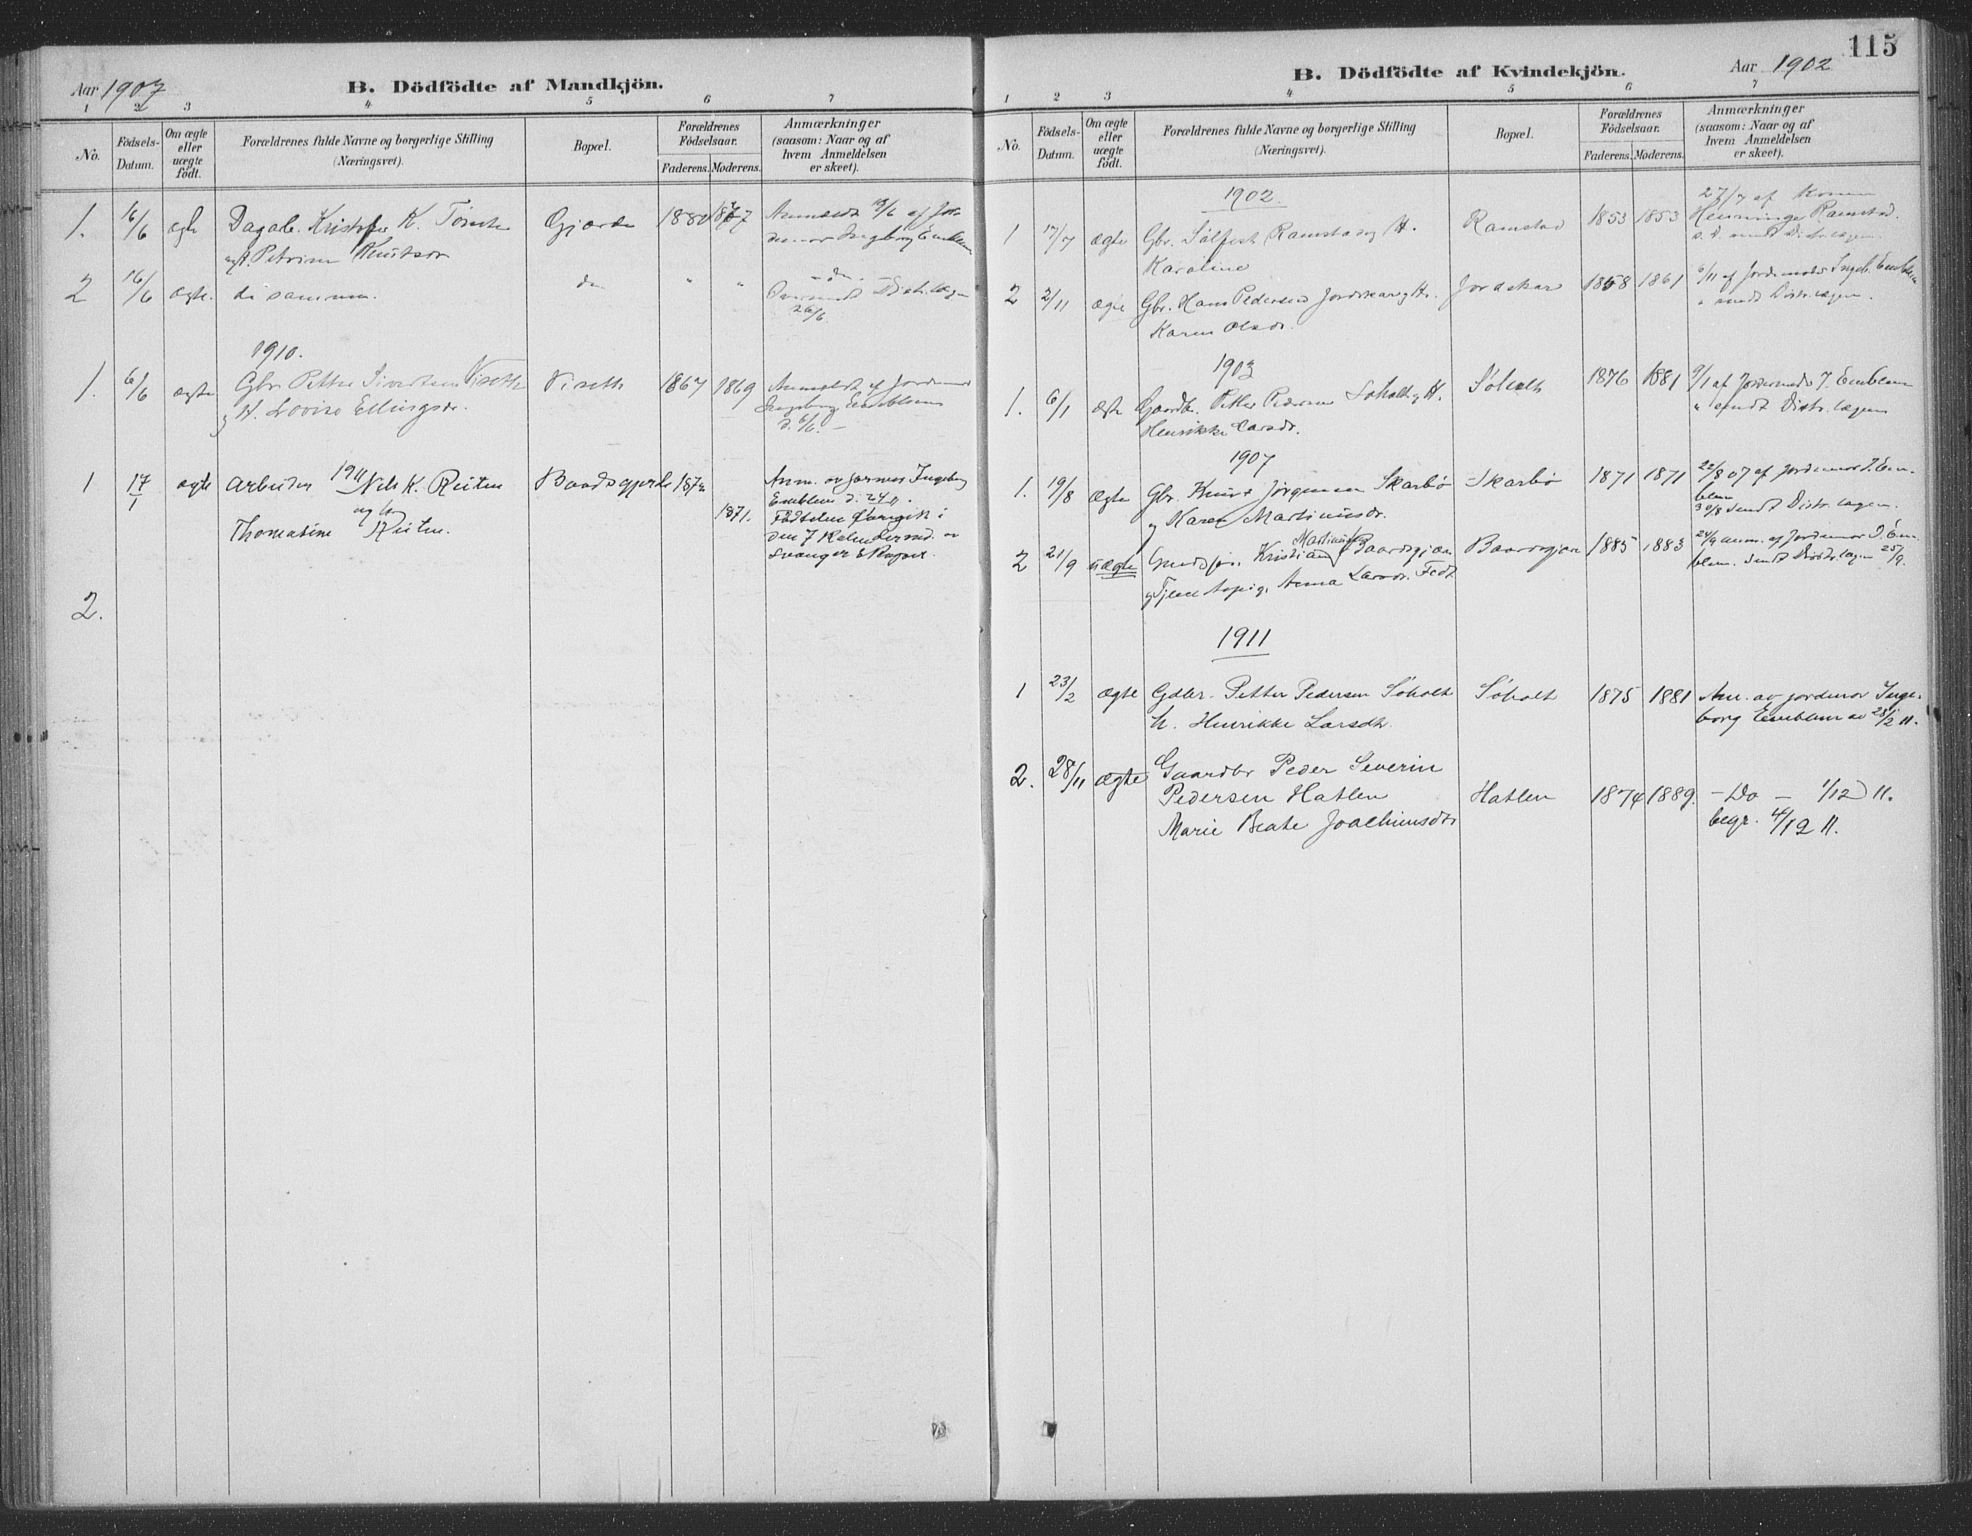 Aar 1907
B. Dödfödte af Mandkjön.
1 2 3 4 5 6 7
No.
Födsels-Datum.
Om ægte eller uægte födt.
Forældrenes fulde Navne og borgerlige Stilling (Næringsvei).
Bopæl.
Forældrenes Födselsaar.
Faderens. Moderens.
Anmærkninger (saasom: Naar og af hvem Anmeldelsen er skeet).
1. 16/6 ægte Dagarb. Kristofer K. Gjærde 1880 1877 Anmeldt af Jor-
Petrine Knutsdr demor Ingeborg Emblem
2 16/6 ægte. de samme. do " " – do. –
Distr.lægen
26/6.
1910.
1. 6/6 ægte Gbr. Petter Sivertsen Viseth Viseth 1867 1869 Anmeldt af Jordemor
og H. Lovise Ellingsdr. Ingeborg Emblem
d. 6/6. –
1911
1 17/1 ægte Arbeider Nils K. Reiten Baadsgjerde 1872 Anm. av jormor Ingeborg
og h. Emblem d. 24/1.
Thomasine Reiten. 1871. Fødselen foregik i
den 7 Kalendermd. av
Svangerskapet.
2.
115
B. Dödfödte af Kvindekjön.
Aar 1902
1 2 3 4 5 6 7
No.
Födsels-Datum.
Om ægte eller uægte födt.
Forældrenes fulde Navne og borgerlige Stilling (Næringsvei).
Bopæl.
Forældrenes Födselsaar.
Faderens. Moderens.
Anmærkninger (saasom: Naar og af hvem Anmeldelsen er skeet).
1902.
1 17/7 ægte Gbr. Sølfest Ramstad og H. Ramstad 1853 1853 27/7 af Konen
Karoline Ramstad.
s. d. sendt Distr.lægen
2 2/11 ægte Gbr. Hans Pedersen Jordskar og H. Jordskar 1858 1861 6/11 af Jordemoder Ingeb. Emblem
Karen Olsdr. " sendt Distr.lægen.
1903
1. 6/1 ægte Gaardbr. Petter Pedersen Søholt og H. Søholt 1876 1881 9/1 af Jordemoder I. Emblem
Henrikke Larsdr. " sendt Distr.lægen
1907
1. 19/8 ægte Gbr. Knut Jörgensen Skarbø Skarbø 1871 1871 22/8 07 af Jordemor I. Em-
og Karen Martinusdr. blem
30/8 sendt Distr.lægen.
2 21/9 uægte Kristian Martinus Baardsgjær Baardsgjær 1885 1883 24/9 anm. af Jordemor I. Em-
og Anna Larsdr. Fedt blem. Sendt Distr.lægen 25/9.
1911
1 23/2 ægte Gdbr. Petter Pedersen Søholt Søholt 1875 1881 Anm. av jordemor Inge-
h. Henrikke Larsdtr. borg Emblem av 28/2 11.
2. 28/11 ægte Gaardbr Peder Severin
Pedersen Hatlen Hatlen 1874 1889. – Do – 1/12 11.
Marie Beate Joachimsdtr begr. 4/12 11.